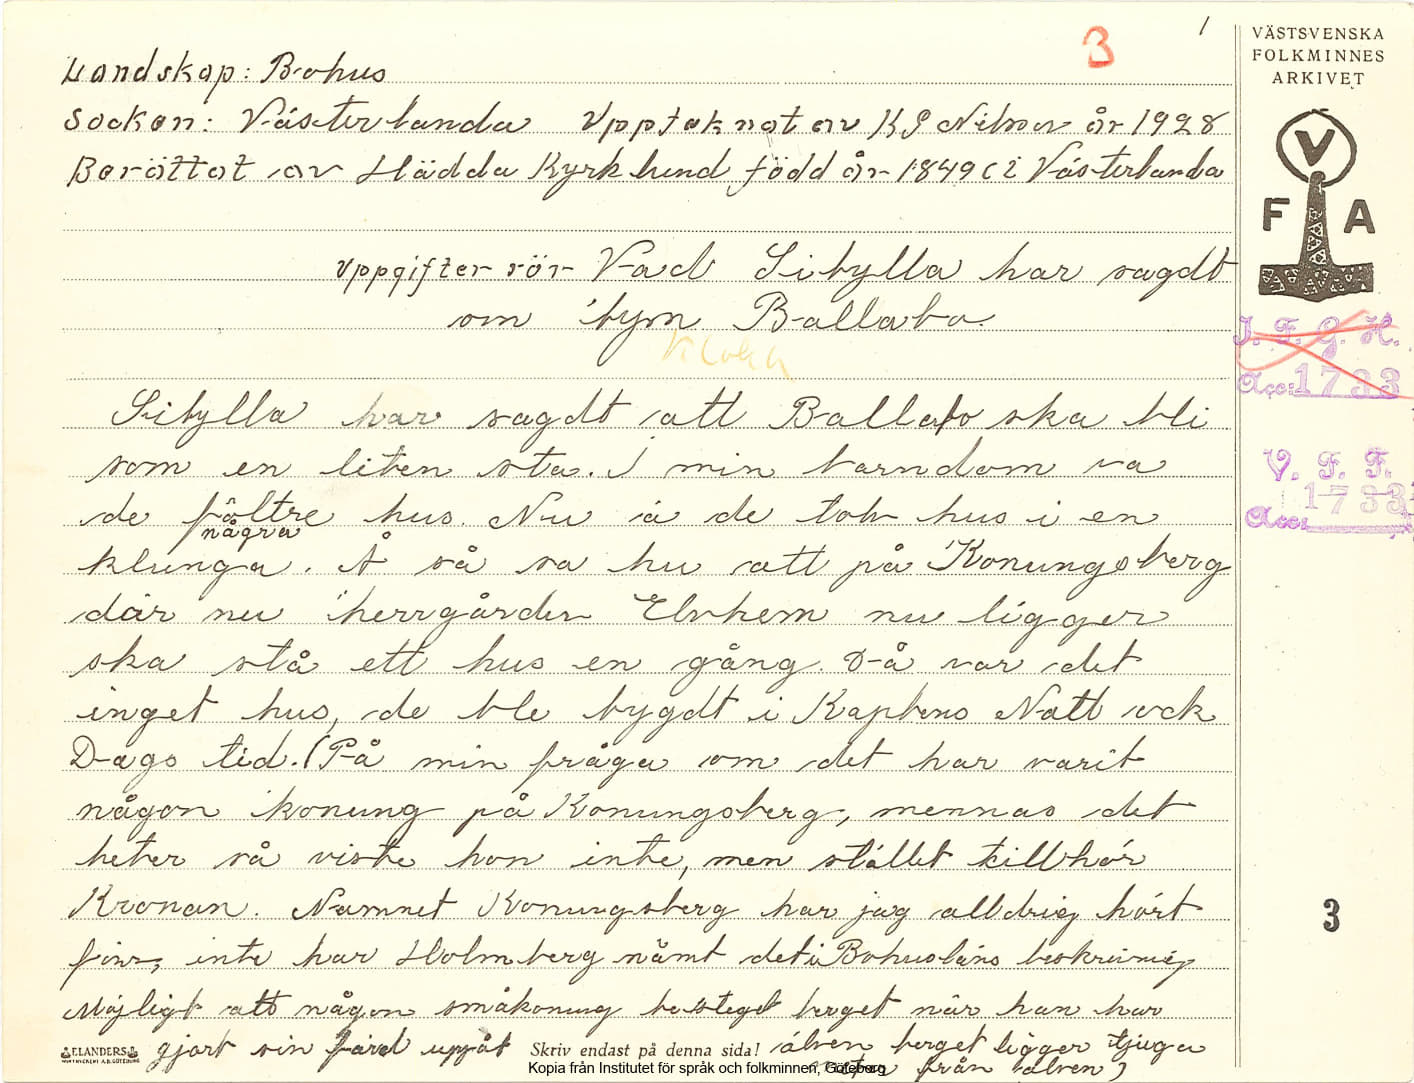 3
1
VÄSTSVENSKA
FOLKMINNES
ARKIVET
V
F A
Landskap: Bohus
Socken: Västerlanda Upptaknat av K S Nilson år 1928
Berättat av Hädda Kyrklund född år 1849 i Västerlanda
Uppgifter rör Vad Sibylla har sagdt
om byn Ballabo.
Kloka
J. F. G. H.
Acc: 1733
V. F. F.
Acc: 1733
Sibylla har sagdt att Ballabo ska bli
som en liten sta. I min barndom va
de fôltre hus. Nu ä de tolv hus i en
några
klunga. Å så sa hu att på Konungsberg
där nu herrgården Elvhem nu ligger
ska stå ett hus en gång. Då var det
inget hus, de ble bygdt i Kaptens Natt ock
Dags tid. (På min fråga om det har varit
någon konung på Konungsberg, mennas det
heter så viste hon inte, men stället tillhör
Kronan. Namnet Konungsberg har jag alldrig hört
förr, inte har Holmberg nämt det i Bohusläns beskrivnig
Möjligt att någon småkonung besteget berget när han har
gjort sin färd uppåt älven berget ligger tjuga
från älven)
ELANDERS
Skriv endast på denna sida!
Kopia från Institutet för språk och folkminnen, Göteborg
3